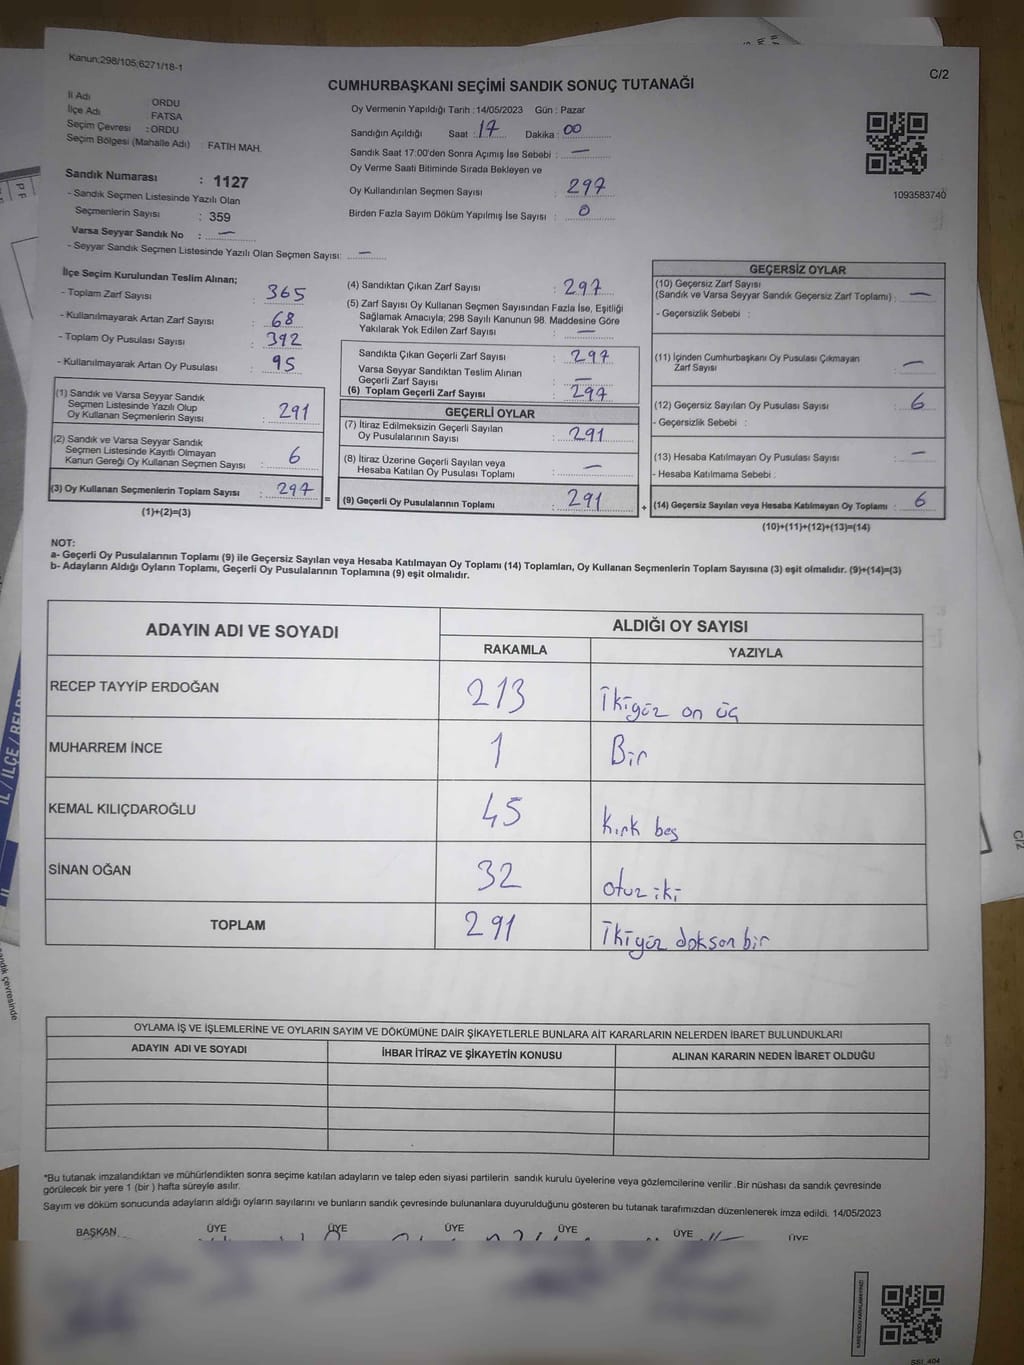 Kanun;298/105;6271/18-1
C/2
CUMHURBAŞKANI SEÇİMİ SANDIK SONUÇ TUTANAĞI
İl Adı ORDU
İlçe Adı : FATSA
Seçim Çevresi : ORDU
Seçim Bölgesi (Mahalle Adı) : FATİH MAH.
Sandık Numarası : 1127
- Sandık Seçmen Listesinde Yazılı Olan
Seçmenlerin Sayısı : 359
Varsa Seyyar Sandık No : —
- Seyyar Sandık Seçmen Listesinde Yazılı Olan Seçmen Sayısı: —
Oy Vermenin Yapıldığı Tarih : 14/05/2023 Gün : Pazar
Sandığın Açıldığı Saat : 17 Dakika : 00
Sandık Saat 17:00'den Sonra Açımış İse Sebebi : —
Oy Verme Saati Bitiminde Sırada Bekleyen ve
Oy Kullandırılan Seçmen Sayısı : 297
Birden Fazla Sayım Döküm Yapılmış İse Sayısı : 0
1093583740
İlçe Seçim Kurulundan Teslim Alınan;
- Toplam Zarf Sayısı : 365
- Kullanılmayarak Artan Zarf Sayısı : 68
- Toplam Oy Pusulası Sayısı : 392
- Kullanılmayarak Artan Oy Pusulası : 95
(1) Sandık ve Varsa Seyyar Sandık
Seçmen Listesinde Yazılı Olup
Oy Kullanan Seçmenlerin Sayısı : 291
(2) Sandık ve Varsa Seyyar Sandık
Seçmen Listesinde Kayıtlı Olmayan
Kanun Gereği Oy Kullanan Seçmen Sayısı : 6
(3) Oy Kullanan Seçmenlerin Toplam Sayısı : 297
(1)+(2)=(3)
=
(4) Sandıktan Çıkan Zarf Sayısı : 297
(5) Zarf Sayısı Oy Kullanan Seçmen Sayısından Fazla İse, Eşitliği
Sağlamak Amacıyla; 298 Sayılı Kanunun 98. Maddesine Göre
Yakılarak Yok Edilen Zarf Sayısı : —
Sandıkta Çıkan Geçerli Zarf Sayısı : 297
Varsa Seyyar Sandıktan Teslim Alınan
Geçerli Zarf Sayısı : —
(6) Toplam Geçerli Zarf Sayısı : 297
GEÇERLİ OYLAR
(7) İtiraz Edilmeksizin Geçerli Sayılan
Oy Pusulalarının Sayısı : 291
(8) İtiraz Üzerine Geçerli Sayılan veya
Hesaba Katılan Oy Pusulası Toplamı : —
(9) Geçerli Oy Pusulalarının Toplamı : 291
+
GEÇERSİZ OYLAR
(10) Geçersiz Zarf Sayısı
(Sandık ve Varsa Seyyar Sandık Geçersiz Zarf Toplamı) : —
- Geçersizlik Sebebi :
(11) İçinden Cumhurbaşkanı Oy Pusulası Çıkmayan
Zarf Sayısı : —
(12) Geçersiz Sayılan Oy Pusulası Sayısı : 6
- Geçersizlik Sebebi :
(13) Hesaba Katılmayan Oy Pusulası Sayısı : —
- Hesaba Katılmama Sebebi :
(14) Geçersiz Sayılan veya Hesaba Katılmayan Oy Toplamı : 6
(10)+(11)+(12)+(13)=(14)
NOT:
a- Geçerli Oy Pusulalarının Toplamı (9) ile Geçersiz Sayılan veya Hesaba Katılmayan Oy Toplamı (14) Toplamları, Oy Kullanan Seçmenlerin Toplam Sayısına (3) eşit olmalıdır. (9)+(14)=(3)
b- Adayların Aldığı Oyların Toplamı, Geçerli Oy Pusulalarının Toplamına (9) eşit olmalıdır.
ADAYIN ADI VE SOYADI ALDIĞI OY SAYISI
RAKAMLA YAZIYLA
RECEP TAYYİP ERDOĞAN 213 İkiyüz on üç
MUHARREM İNCE 1 Bir
KEMAL KILIÇDAROĞLU 45 kırk beş
SİNAN OĞAN 32 otuz iki
TOPLAM 291 İkiyüz doksan bir
OYLAMA İŞ VE İŞLEMLERİNE VE OYLARIN SAYIM VE DÖKÜMÜNE DAİR ŞİKAYETLERLE BUNLARA AİT KARARLARIN NELERDEN İBARET BULUNDUKLARI
ADAYIN ADI VE SOYADI İHBAR İTİRAZ VE ŞİKAYETİN KONUSU ALINAN KARARIN NEDEN İBARET OLDUĞU
*Bu tutanak imzalandıktan ve mühürlendikten sonra seçime katılan adayların ve talep eden siyasi partilerin sandık kurulu üyelerine veya gözlemcilerine verilir .Bir nüshası da sandık çevresinde
görülecek bir yere 1 (bir ) hafta süreyle asılır.
Sayım ve döküm sonucunda adayların aldığı oyların sayılarını ve bunların sandık çevresinde bulunanlara duyurulduğunu gösteren bu tutanak tarafımızdan düzenlenerek imza edildi. 14/05/2023
BAŞKAN ÜYE ÜYE ÜYE ÜYE ÜYE ÜYE
C/2
İL / İLÇE /
sandık çevresinde